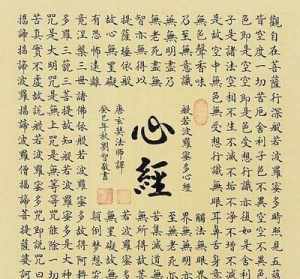 觀自在菩薩行深般若波羅蜜多時照見五蘊
皆空度一切苦厄舍利子色不異空空不異色
色即是空空即是色受想行識亦復如是舍利
子是諸法空相不生不滅不垢不淨不增不減
是故空中無色無受想行識無眼耳鼻舌身意
無色聲香味
觸法無眼界
乃至無意識
界無無明亦
無無明盡乃
至無老死亦
無老死盡無
苦集滅道無
智亦無得以
無所得故菩
提薩埵依般
若波羅蜜多
故心無罣礙
無罣礙故無
有恐怖遠離
顛倒夢想究
竟涅槃三世諸佛依般若波羅蜜多故得阿耨
多羅三藐三菩提故知般若波羅蜜多是大神
咒是大明咒是無上咒是無等等咒能除一切
苦真實不虛故說般若波羅蜜多咒即說咒曰
揭諦揭諦波羅揭諦波羅僧揭諦
般若波羅蜜多心經
心經
唐玄奘法師譯
癸巳年秋劉智敬書